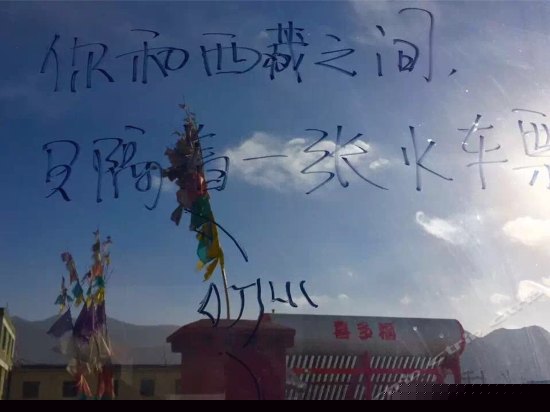 你和西藏之间,
只隔着一张火车票
喜多福